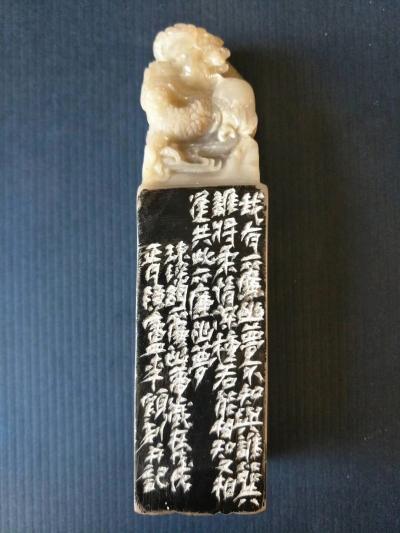 我有一簾幽夢不知與誰共
誰將柔情深種若能相知又相
逢共此一簾幽夢
瓊瑤詞一簾幽夢歲在戊戌
正月刻并記